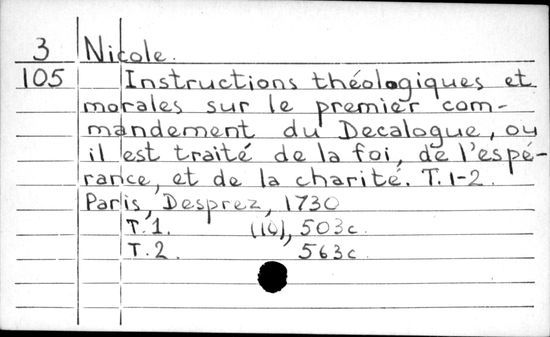 3 Nicole.
105 Instructions théologiques et
morales sur le premier com-
mandement du Decalogue, ou
il est traité de la foi, de l'espé-
rance, et de la charité. T. 1-2.
Paris, Desprez, 1730
T. 1. (10), 503c.
T. 2. 563c.